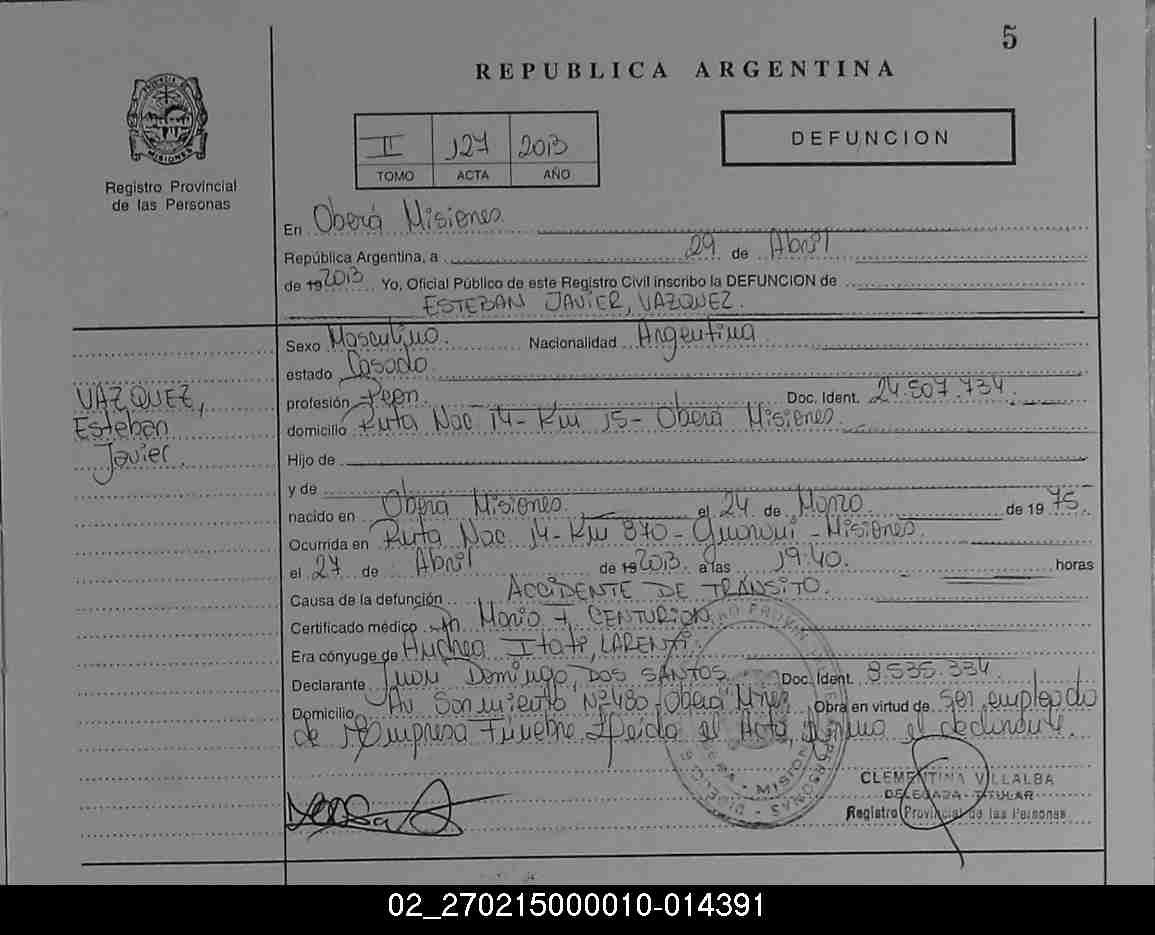 5
REPUBLICA ARGENTINA
PROVINCIA DE MISIONES
Registro Provincial
de las Personas
II 127 2013
TOMO ACTA AÑO
DEFUNCION
En Oberá Misiones
República Argentina, a 29 de Abril
de 19 2013 Yo, Oficial Público de este Registro Civil inscribo la DEFUNCION de
ESTEBAN JAVIER, VAZQUEZ.
VAZQUEZ,
Esteban
Javier.
Sexo Masculino. Nacionalidad Argentina
estado Casado
profesión Peon. Doc. Ident. 24.507.734.
domicilio Ruta Nac 14- Km 15- Oberá Misiones.
Hijo de
y de
nacido en Oberá Misiones. el 24 de Marzo de 19 75.
Ocurrida en Ruta Nac 14- Km 870- Guarani - Misiones.
el 27 de Abril de 19 2013 a las 19:40. horas
Causa de la defunción ACCIDENTE DE TRÁNSITO.
Certificado médico Mario CENTURION
Era cónyuge de Andrea Itati, LARENZI.
Declarante Juan Domingo, DOS SANTOS. Doc. Ident. 8.535.334
Domicilio Av Sarmiento Nº 480-Oberá Mnes Obra en virtud de ser empleado
de Empresa Fúnebre Leida el Acta, firma el declarante.
CLEMENTINA VILLALBA
DELEGADA TITULAR
Registro Provincial de las Personas
02_270215000010-014391